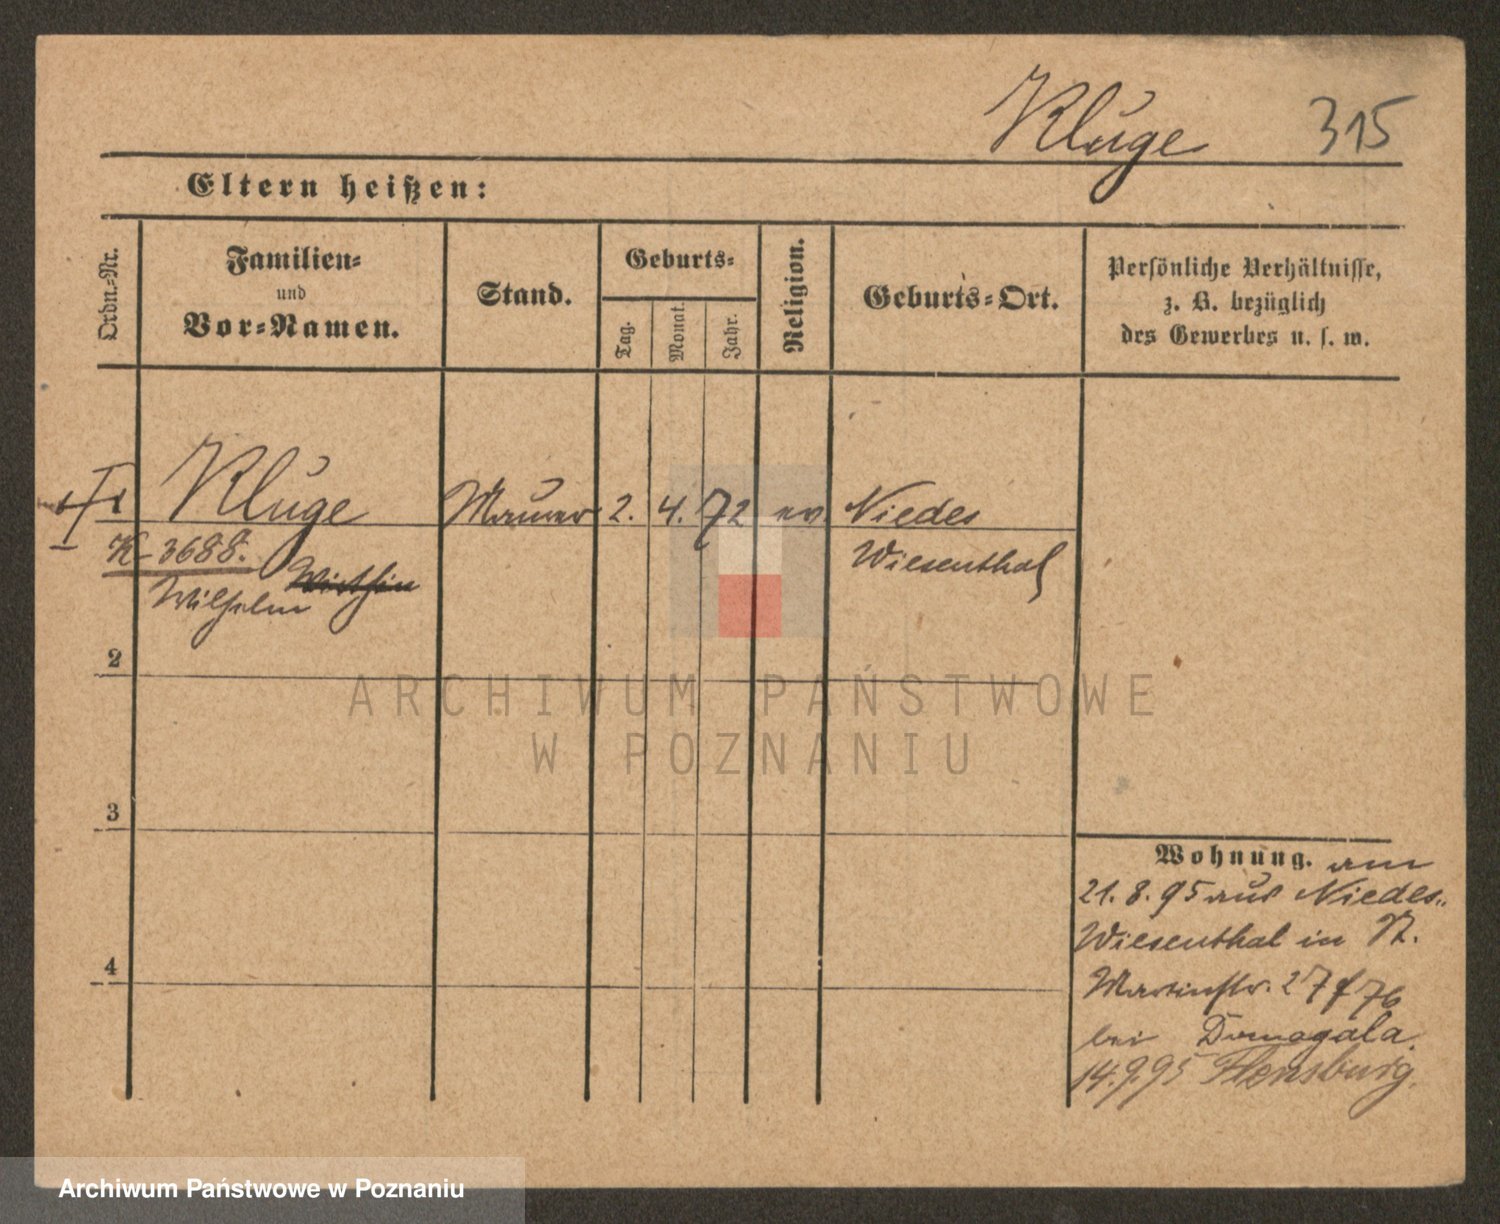 Kluge 315
Eltern heißen:
Ordn.-Nr.
Familien-
und
Vor-Namen.
Stand.
Geburts-
Tag.
Monat.
Jahr.
Religion.
Geburts-Ort.
Persönliche Verhältnisse,
z. B. bezüglich
des Gewerbes u. s. w.
Kluge Maurer 2. 4. 72 ev. Niedes
K 3688. Wiesenthal
Wilhelm
2
3
4
Wohnung. am
21.8.95 aus Niedes-
Wiesenthal in St.
Martinstr. 27 76
bei Domagala.
14.9.95 Flensburg.
ARCHIWUM PAŃSTWOWE
W POZNANIU
Archiwum Państwowe w Poznaniu